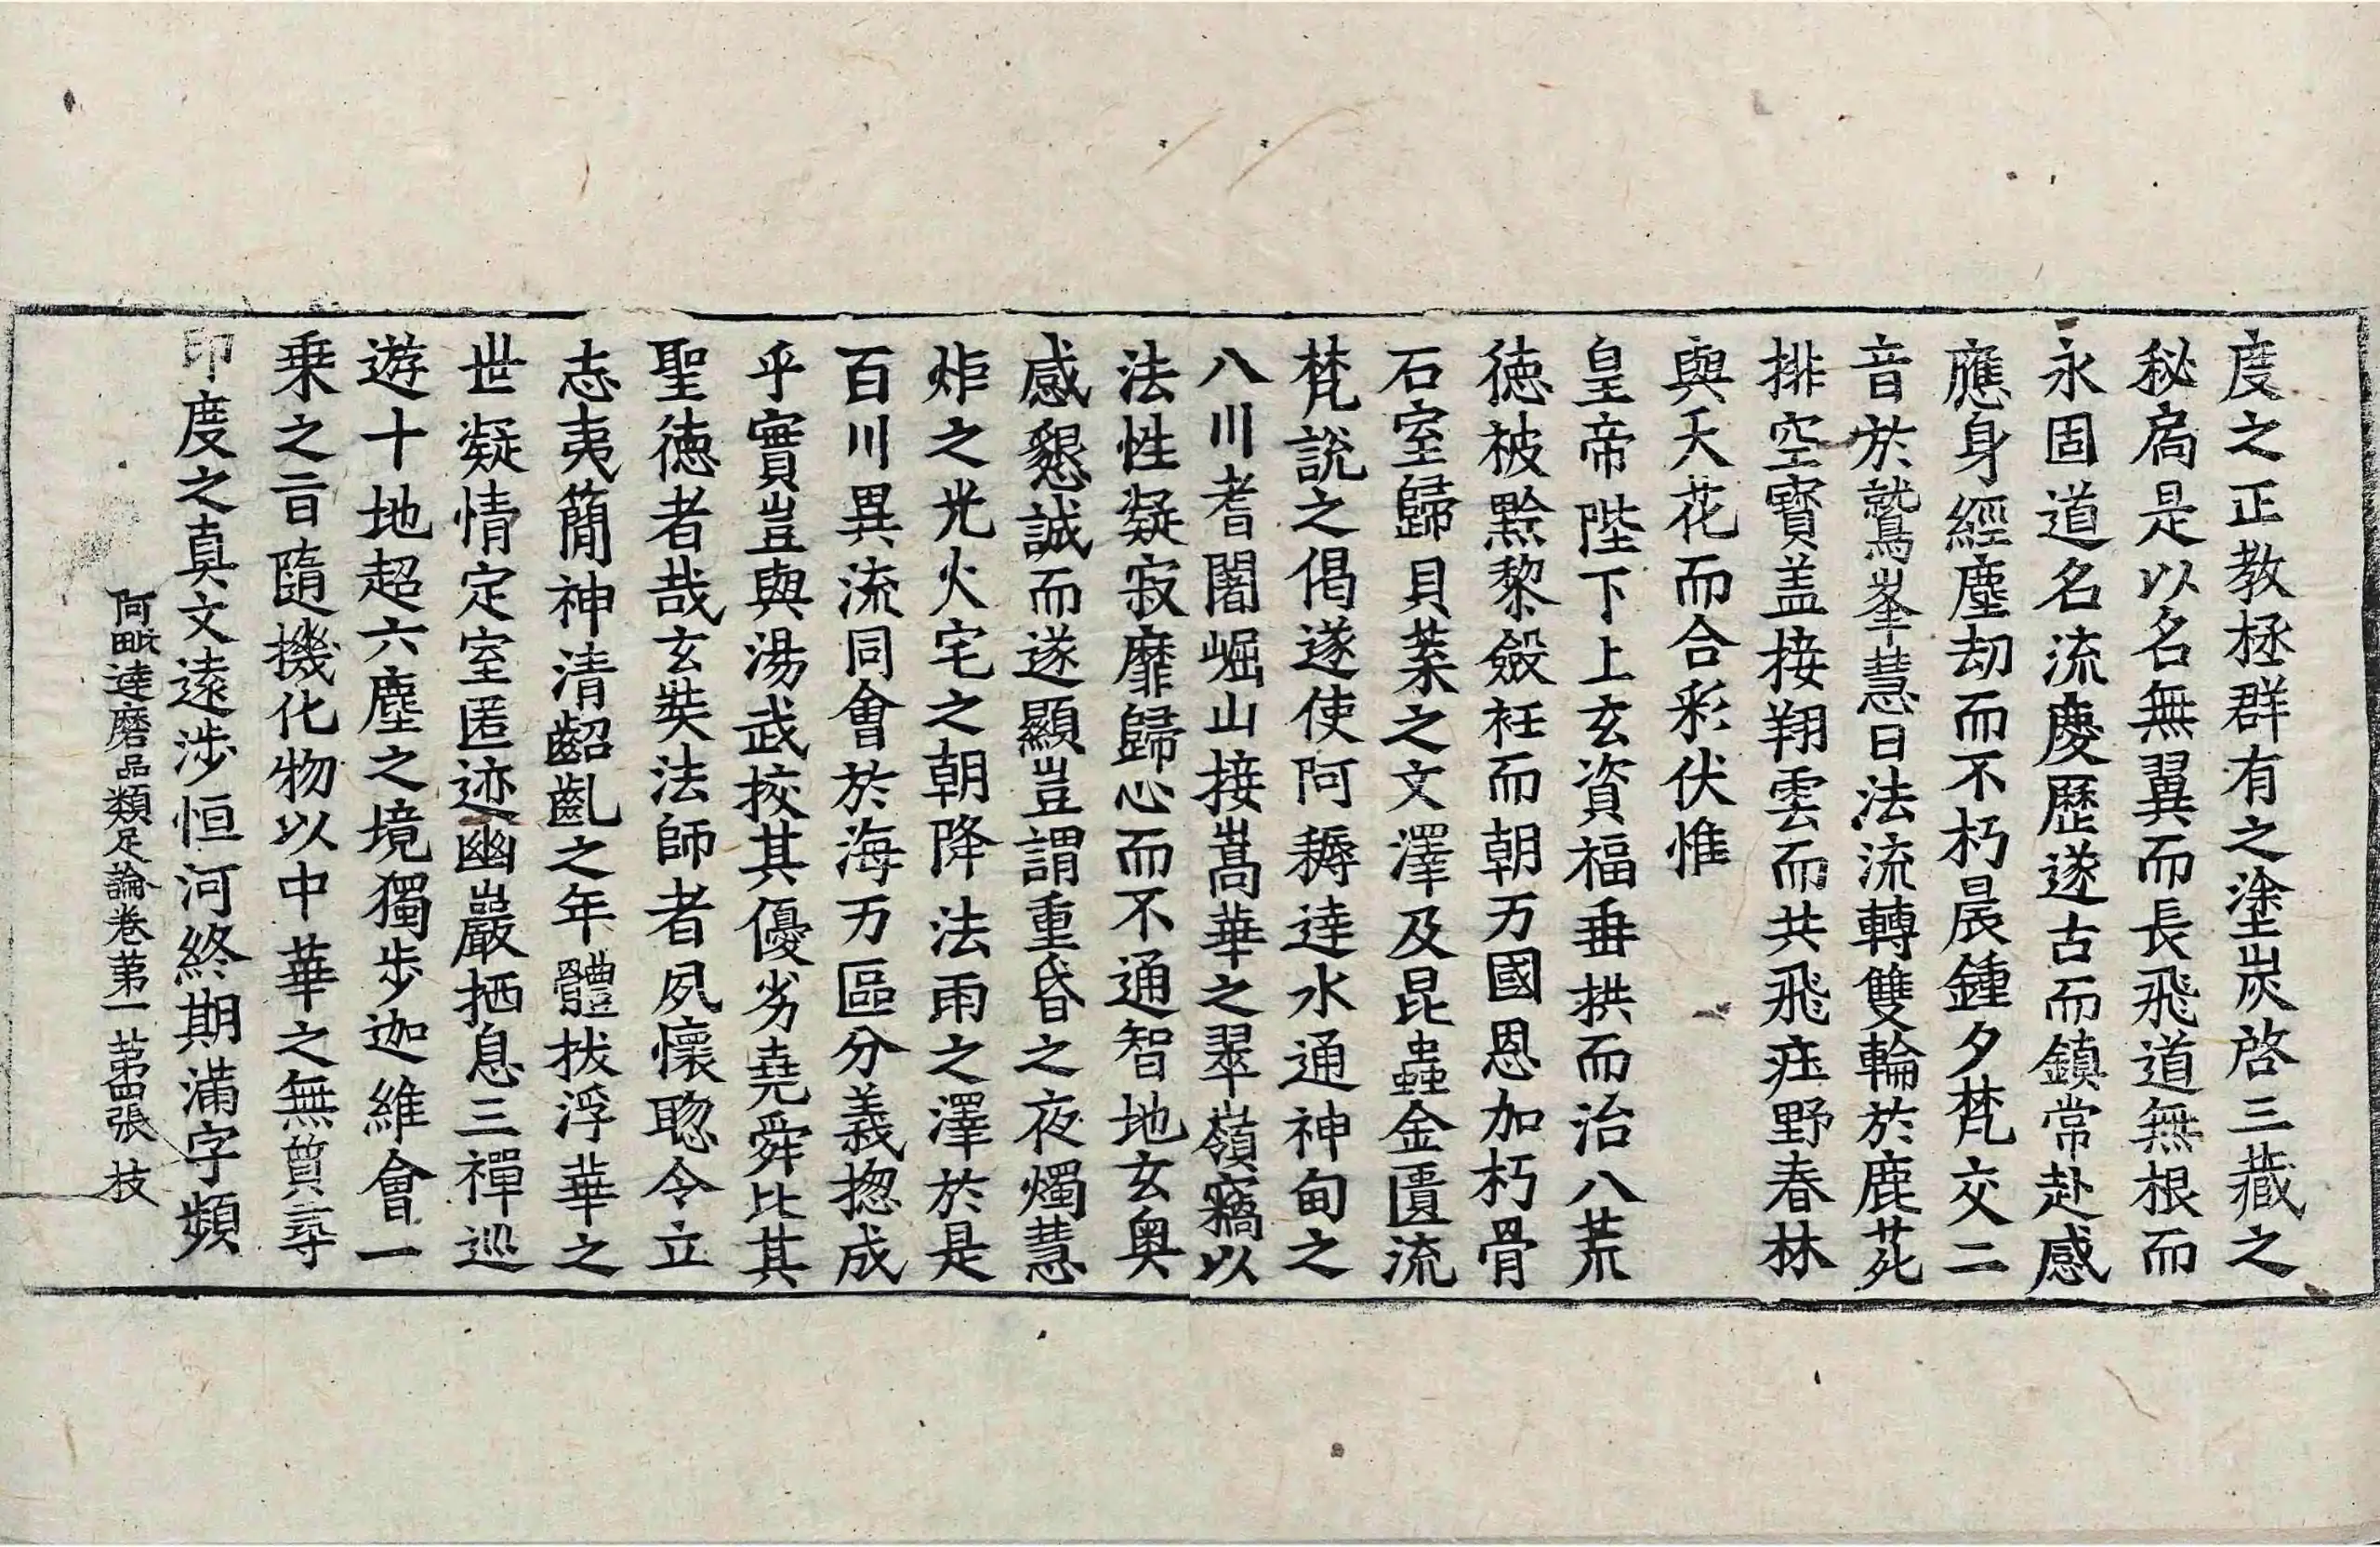 度之正教拯群有之塗炭啓三藏之
秘扃是以名無翼而長飛道無根而
永固道名流慶歷遂古而鎮常赴感
應身經塵劫而不朽晨鍾夕梵交二
音於鷲峯慧日法流轉雙輪於鹿菀
排空寶盖接翔雲而共飛莊野春林
與天花而合彩伏惟
皇帝陛下上玄資福垂拱而治八荒
德被黔黎斂衽而朝万國恩加朽骨
石室歸貝葉之文澤及昆蟲金匱流
梵說之偈遂使阿耨達水通神甸之
八川耆闍崛山接嵩華之翠嶺竊以
法性凝寂靡歸心而不通智地玄奥
感懇誠而遂顯豈謂重昏之夜燭慧
炬之光火宅之朝降法雨之澤於是
百川異流同會於海万區分義揔成
乎實豈與湯武挍其優劣堯舜比其
聖德者哉玄奘法師者夙懷聦令立
志夷簡神清齠齓之年體拔浮華之
世凝情定室匿迹幽巖栖息三禪巡
遊十地超六塵之境獨步迦維會一
乗之旨隨機化物以中華之無質尋
印度之真文遠涉恒河終期滿字頻
阿毗達磨品類足論卷第一 第四張 枝